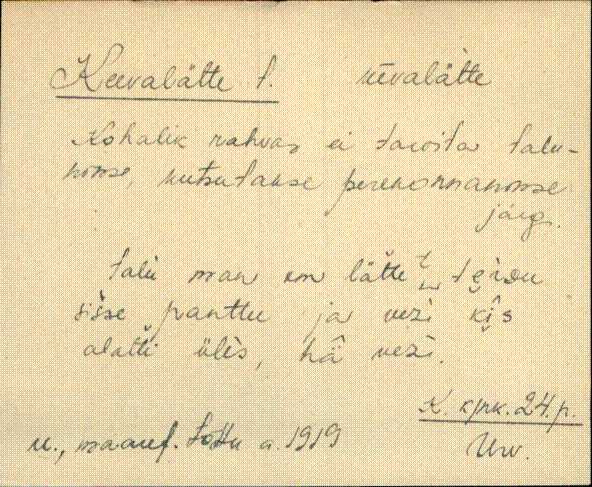 Keevalätte t. kēvalätte
Kohalik rahvas ei tarvita talu-
nime, kutsutakse perekonnanime
järg.
talu man om lätte
sisse panttu ja vezi kîs
alatti üles, hä vezi.
K. kjrk. 24. p.
u., maauf. tottu a. 1919
Urv.